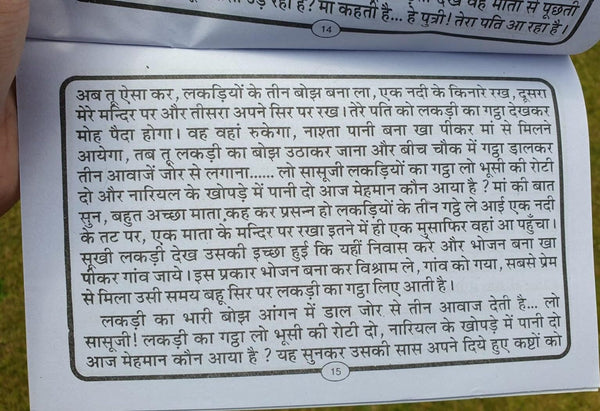 मां कहती है... हे पुत्री! तेरा पति आ रहा है।
14
अब तू ऐसा कर, लकड़ियों के तीन बोझ बना ला, एक नदी के किनारे रख, दूसरा
मेरे मन्दिर पर और तीसरा अपने सिर पर रख। तेरे पति को लकड़ी का गट्ठा देखकर
मोह पैदा होगा। वह वहां रुकेगा, नाश्ता पानी बना खा पीकर मां से मिलने
आयेगा, तब तू लकड़ी का बोझ उठाकर जाना और बीच चौक में गट्ठा डालकर
तीन आवाजें जोर से लगाना...... लो सासूजी लकड़ियों का गट्ठा लो भूसी की रोटी
दो और नारियल के खोपड़े में पानी दो आज मेहमान कौन आया है ? मां की बात
सुन, बहुत अच्छा माता कह कर प्रसन्न हो लकड़ियों के तीन गट्ठे ले आई एक नदी
के तट पर, एक माता के मन्दिर पर रखा इतने में ही एक मुसाफिर वहां आ पहुँचा।
सूखी लकड़ी देख उसकी इच्छा हुई कि यहीं निवास करे और भोजन बना खा
पीकर गांव जाये। इस प्रकार भोजन बना कर विश्राम ले, गांव को गया, सबसे प्रेम
से मिला उसी समय बहू सिर पर लकड़ी का गट्ठा लिए आती है।
लकड़ी का भारी बोझ आंगन में डाल जोर से तीन आवाज देती है... लो
सासूजी! लकड़ी का गट्ठा लो भूसी की रोटी दो, नारियल के खोपड़े में पानी दो
आज मेहमान कौन आया है ? यह सुनकर उसकी सास अपने दिये हुए कष्टों को
15